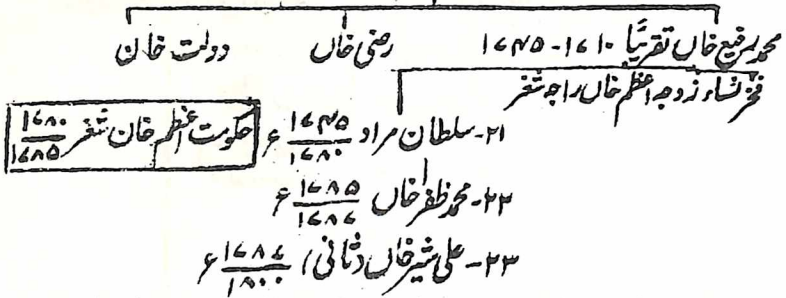 محمد رفیع خاں تقریباً ۱۷۱۰-۱۷۴۵ رضی خاں دولت خان
فخر نساء زوجہ اعظم خاں راجہ شغر
۲۱-سلطان مراد ۱۷۴۵/۱۷۸۰ء حکومت اعظم خان شغر ۱۷۸۰/۱۷۸۵
۲۲-محمد ظفر خاں ۱۷۸۵/۱۷۸۷ء
۲۳-علی شیر خاں (ثانی) ۱۷۸۷/۱۸۰۰ء